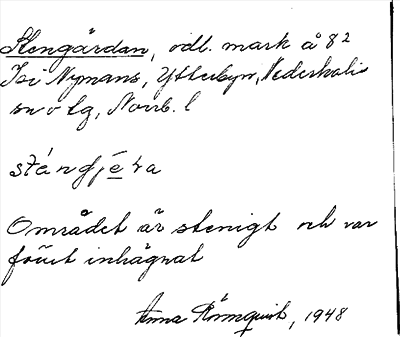 Stengärdan, odl. mark å 8 2
Isi Nymans, Ytterbyn, Nederkalix
sn o tg, Norrb. l
sténdjē̱ra
Området är stenigt och var
förut inhägnat
Anna Rönnquist, 1948